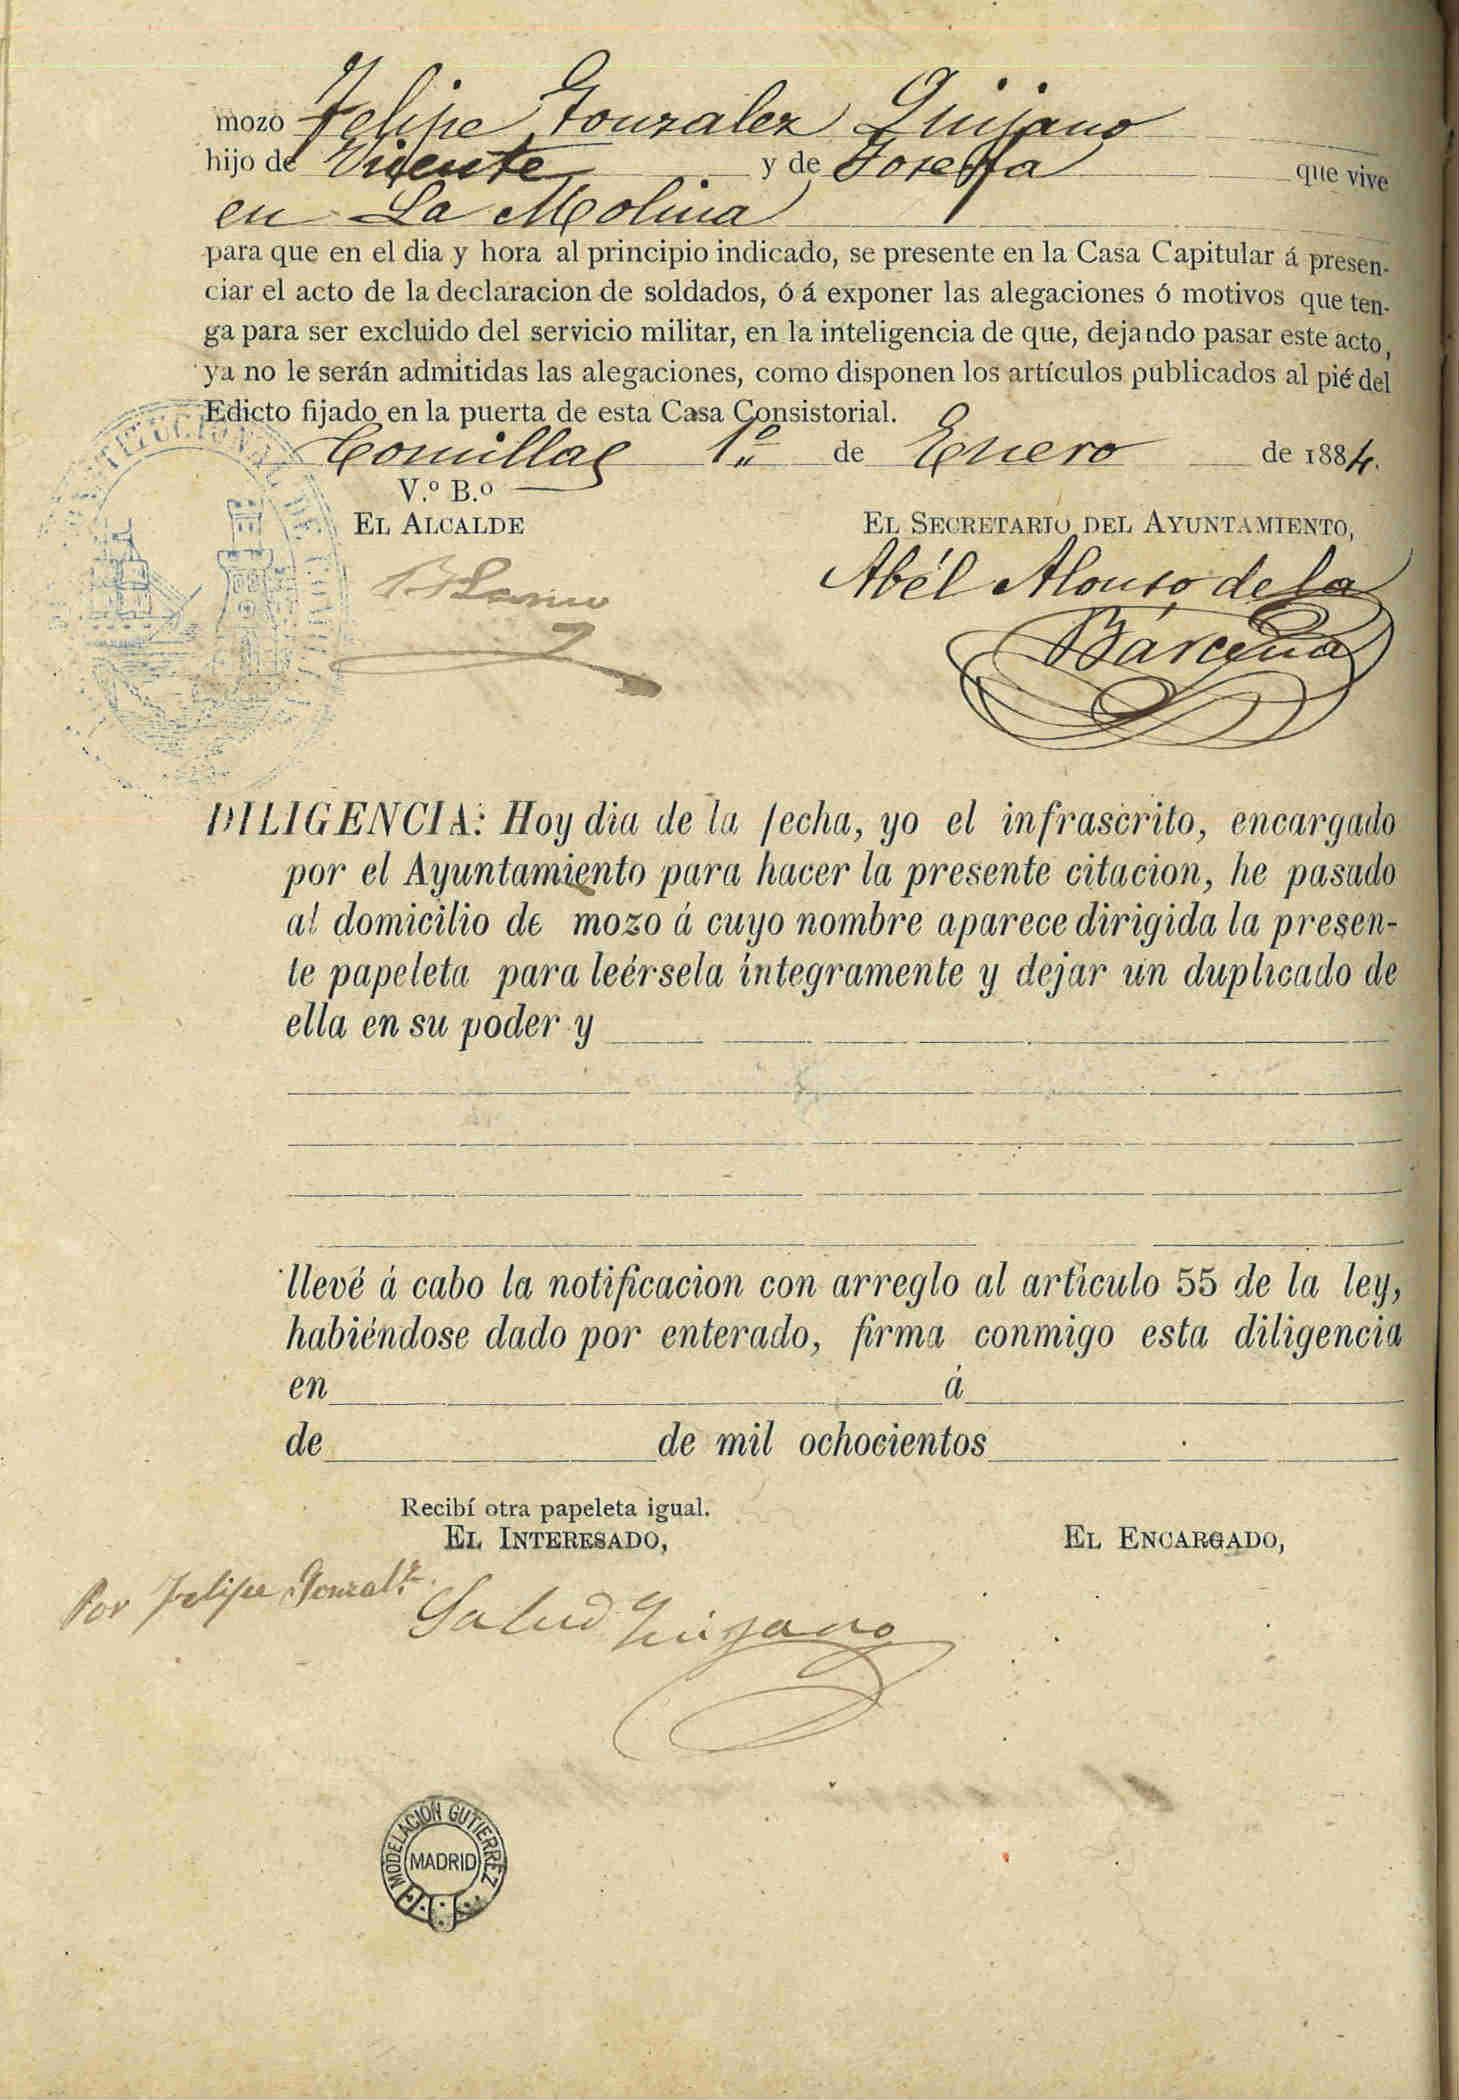 mozo Felipe Gonzalez Quijano
hijo de Vicente y de Josefa que vive
en La Molina
para que en el dia y hora al principio indicado, se presente en la Casa Capitular á presen-
ciar el acto de la declaracion de soldados, ó á exponer las alegaciones ó motivos que ten-
ga para ser excluido del servicio militar, en la inteligencia de que, dejando pasar este acto,
ya no le serán admitidas las alegaciones, como disponen los artículos publicados al pié del
Edicto fijado en la puerta de esta Casa Consistorial.
Comillas 1.º de Enero de 1884.
V.º B.º
EL ALCALDE
EL SECRETARIO DEL AYUNTAMIENTO,
Abél Alonso de la
Bárcena
DILIGENCIA: Hoy dia de la fecha, yo el infrascrito, encargado
por el Ayuntamiento para hacer la presente citacion, he pasado
al domicilio de mozo á cuyo nombre aparece dirigida la presen-
te papeleta para leérsela íntegramente y dejar un duplicado de
ella en su poder y
llevé á cabo la notificacion con arreglo al artículo 55 de la ley,
habiéndose dado por enterado, firma conmigo esta diligencia
en á
de de mil ochocientos
Recibí otra papeleta igual.
EL INTERESADO,
EL ENCARGADO,
Por Felipe Gonzalz.
Salud Quijano
MODELACION GUTIERREZ
MADRID